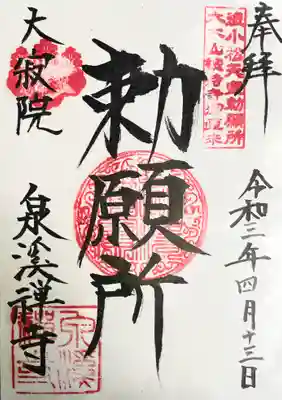 奉拝
令和三年四月十三日
勅願所
大寂院
泉溪禅寺